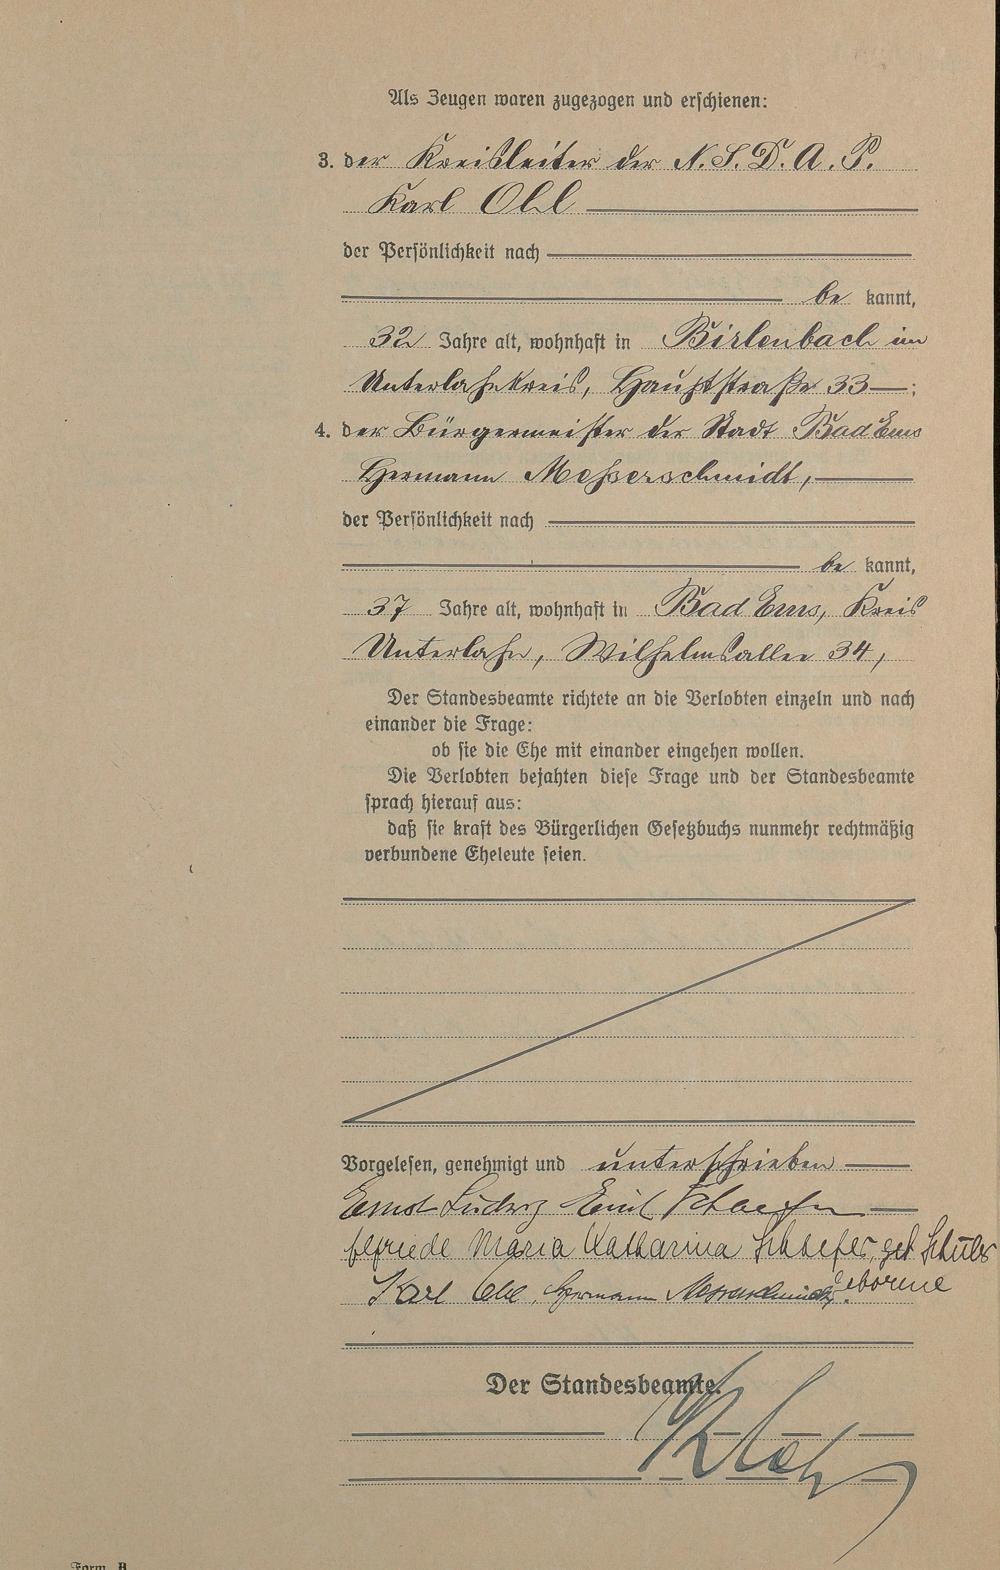 Als Zeugen waren zugezogen und erschienen:
3. der Kreisleiter der N.S.D.A.P.
Karl Ohl
der Persönlichkeit nach
be kannt,
32 Jahre alt, wohnhaft in Birlenbach im
Unterlahnkreis, Hauptstraße 33 ;
4. der Bürgermeister der Stadt Bad Ems
Hermann Messerschmidt,
der Persönlichkeit nach
be kannt,
37 Jahre alt, wohnhaft in Bad Ems, Kreis
Unterlahn, Wilhelmsallee 34,
Der Standesbeamte richtete an die Verlobten einzeln und nach
einander die Frage:
ob sie die Ehe mit einander eingehen wollen.
Die Verlobten bejahten diese Frage und der Standesbeamte
sprach hierauf aus:
daß sie kraft des Bürgerlichen Gesetzbuchs nunmehr rechtmäßig
verbundene Eheleute seien.
Vorgelesen, genehmigt und unterschrieben
Ernst Ludwig Emil Schaefer
Elfriede Maria Katharina Schaefer, geb
Karl Ohl, Hermann Messerschmidt, geborene
Der Standesbeamte.
Form. B